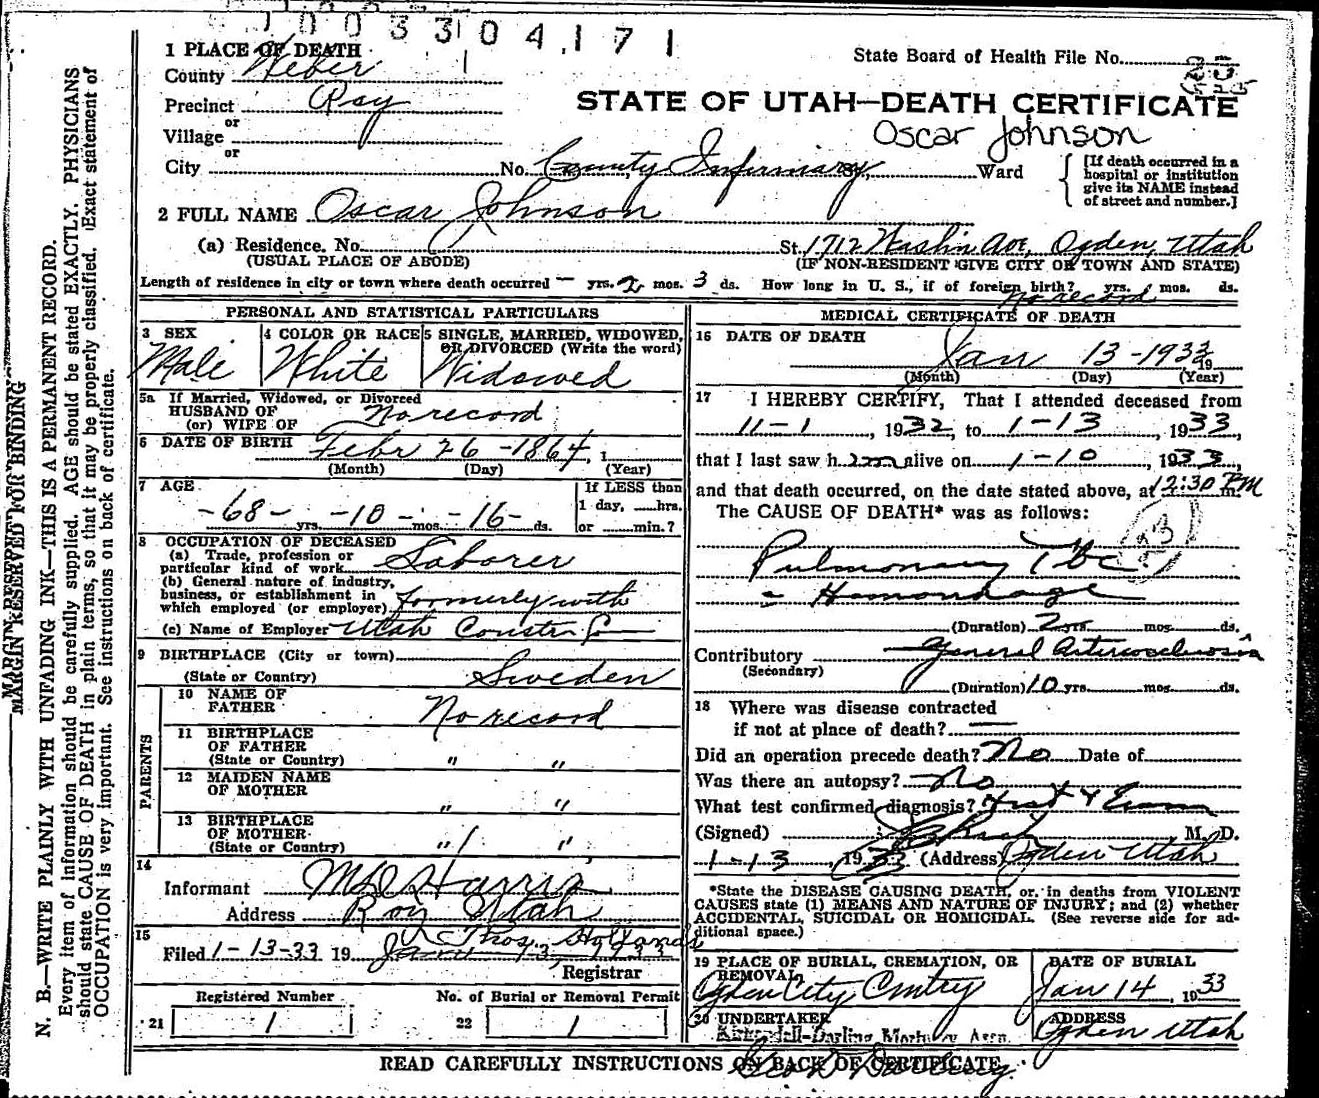 1 0 0 3 3 0 4 1 7 1
1 PLACE OF DEATH
County Weber
Precinct Roy
or
Village
or
City
State Board of Health File No.
STATE OF UTAH—DEATH CERTIFICATE
Oscar Johnson
No. County Infirmary St., Ward
[If death occurred in a
hospital or institution
give its NAME instead
of street and number.]
2 FULL NAME Oscar Johnson
(a) Residence. No. St. 1712 Washin Ave, Ogden, Utah
(USUAL PLACE OF ABODE) (IF NON-RESIDENT GIVE CITY OR TOWN AND STATE)
Length of residence in city or town where death occurred — yrs. 2 mos. 3 ds. How long in U. S., if of foreign birth? yrs. mos. ds.
No record
PERSONAL AND STATISTICAL PARTICULARS
3 SEX
Male
4 COLOR OR RACE
White
5 SINGLE, MARRIED, WIDOWED,
OR DIVORCED (Write the word)
Widowed
5a If Married, Widowed, or Divorced
HUSBAND OF
(or) WIFE OF
No record
6 DATE OF BIRTH Febr 26 -1864, 1
(Month) (Day) (Year)
7 AGE
-68- yrs. -10- mos. -16- ds.
If LESS than
1 day, hrs.
or min.?
8 OCCUPATION OF DECEASED
(a) Trade, profession or
particular kind of work Laborer
(b) General nature of industry,
business, or establishment in
which employed (or employer) formerly with
(c) Name of Employer Utah Constr Co
9 BIRTHPLACE (City or town)
(State or Country) Sweden
PARENTS
10 NAME OF
FATHER
No record
11 BIRTHPLACE
OF FATHER
(State or Country) " "
12 MAIDEN NAME
OF MOTHER
" "
13 BIRTHPLACE
OF MOTHER
(State or Country) " "
14
Informant Harris
Address Roy Utah
15
Filed 1-13-33 19 Thos. Hollands
Jan 13 1933
Registrar
Registered Number No. of Burial or Removal Permit
21 1 22 1
MEDICAL CERTIFICATE OF DEATH
16 DATE OF DEATH
Jan 13-1933 19
(Month) (Day) (Year)
17 I HEREBY CERTIFY, That I attended deceased from
11-1, 1932, to 1-13, 1933,
that I last saw h im alive on 1-10, 1933,
and that death occurred, on the date stated above, at 12:30 PM m.
The CAUSE OF DEATH* was as follows:
23
Pulmonary Tbc
- Hemorrhage
(Duration) 2 yrs. mos. ds.
Contributory General Arteriosclerosis
(Secondary)
(Duration) 10 yrs. mos. ds.
18 Where was disease contracted
if not at place of death? —
Did an operation precede death? No Date of
Was there an autopsy? No
What test confirmed diagnosis?
(Signed) M. D.
1-13, 1933 (Address) Ogden Utah
*State the DISEASE CAUSING DEATH, or, in deaths from VIOLENT
CAUSES state (1) MEANS AND NATURE OF INJURY; and (2) whether
ACCIDENTAL, SUICIDAL OR HOMICIDAL. (See reverse side for ad-
ditional space.)
19 PLACE OF BURIAL, CREMATION, OR
REMOVAL
Ogden City Cmtry
DATE OF BURIAL
Jan 14, 1933
20 UNDERTAKER
Kirkendall-Darling Mortuary Assn.
Geo W Darling
ADDRESS
Ogden Utah
READ CAREFULLY INSTRUCTIONS ON BACK OF CERTIFICATE
MARGIN RESERVED FOR BINDING
N. B.—WRITE PLAINLY WITH UNFADING INK—THIS IS A PERMANENT RECORD.
Every item of information should be carefully supplied. AGE should be stated EXACTLY. PHYSICIANS
should state CAUSE OF DEATH in plain terms, so that it may be properly classified. Exact statement of
OCCUPATION is very important. See instructions on back of certificate.